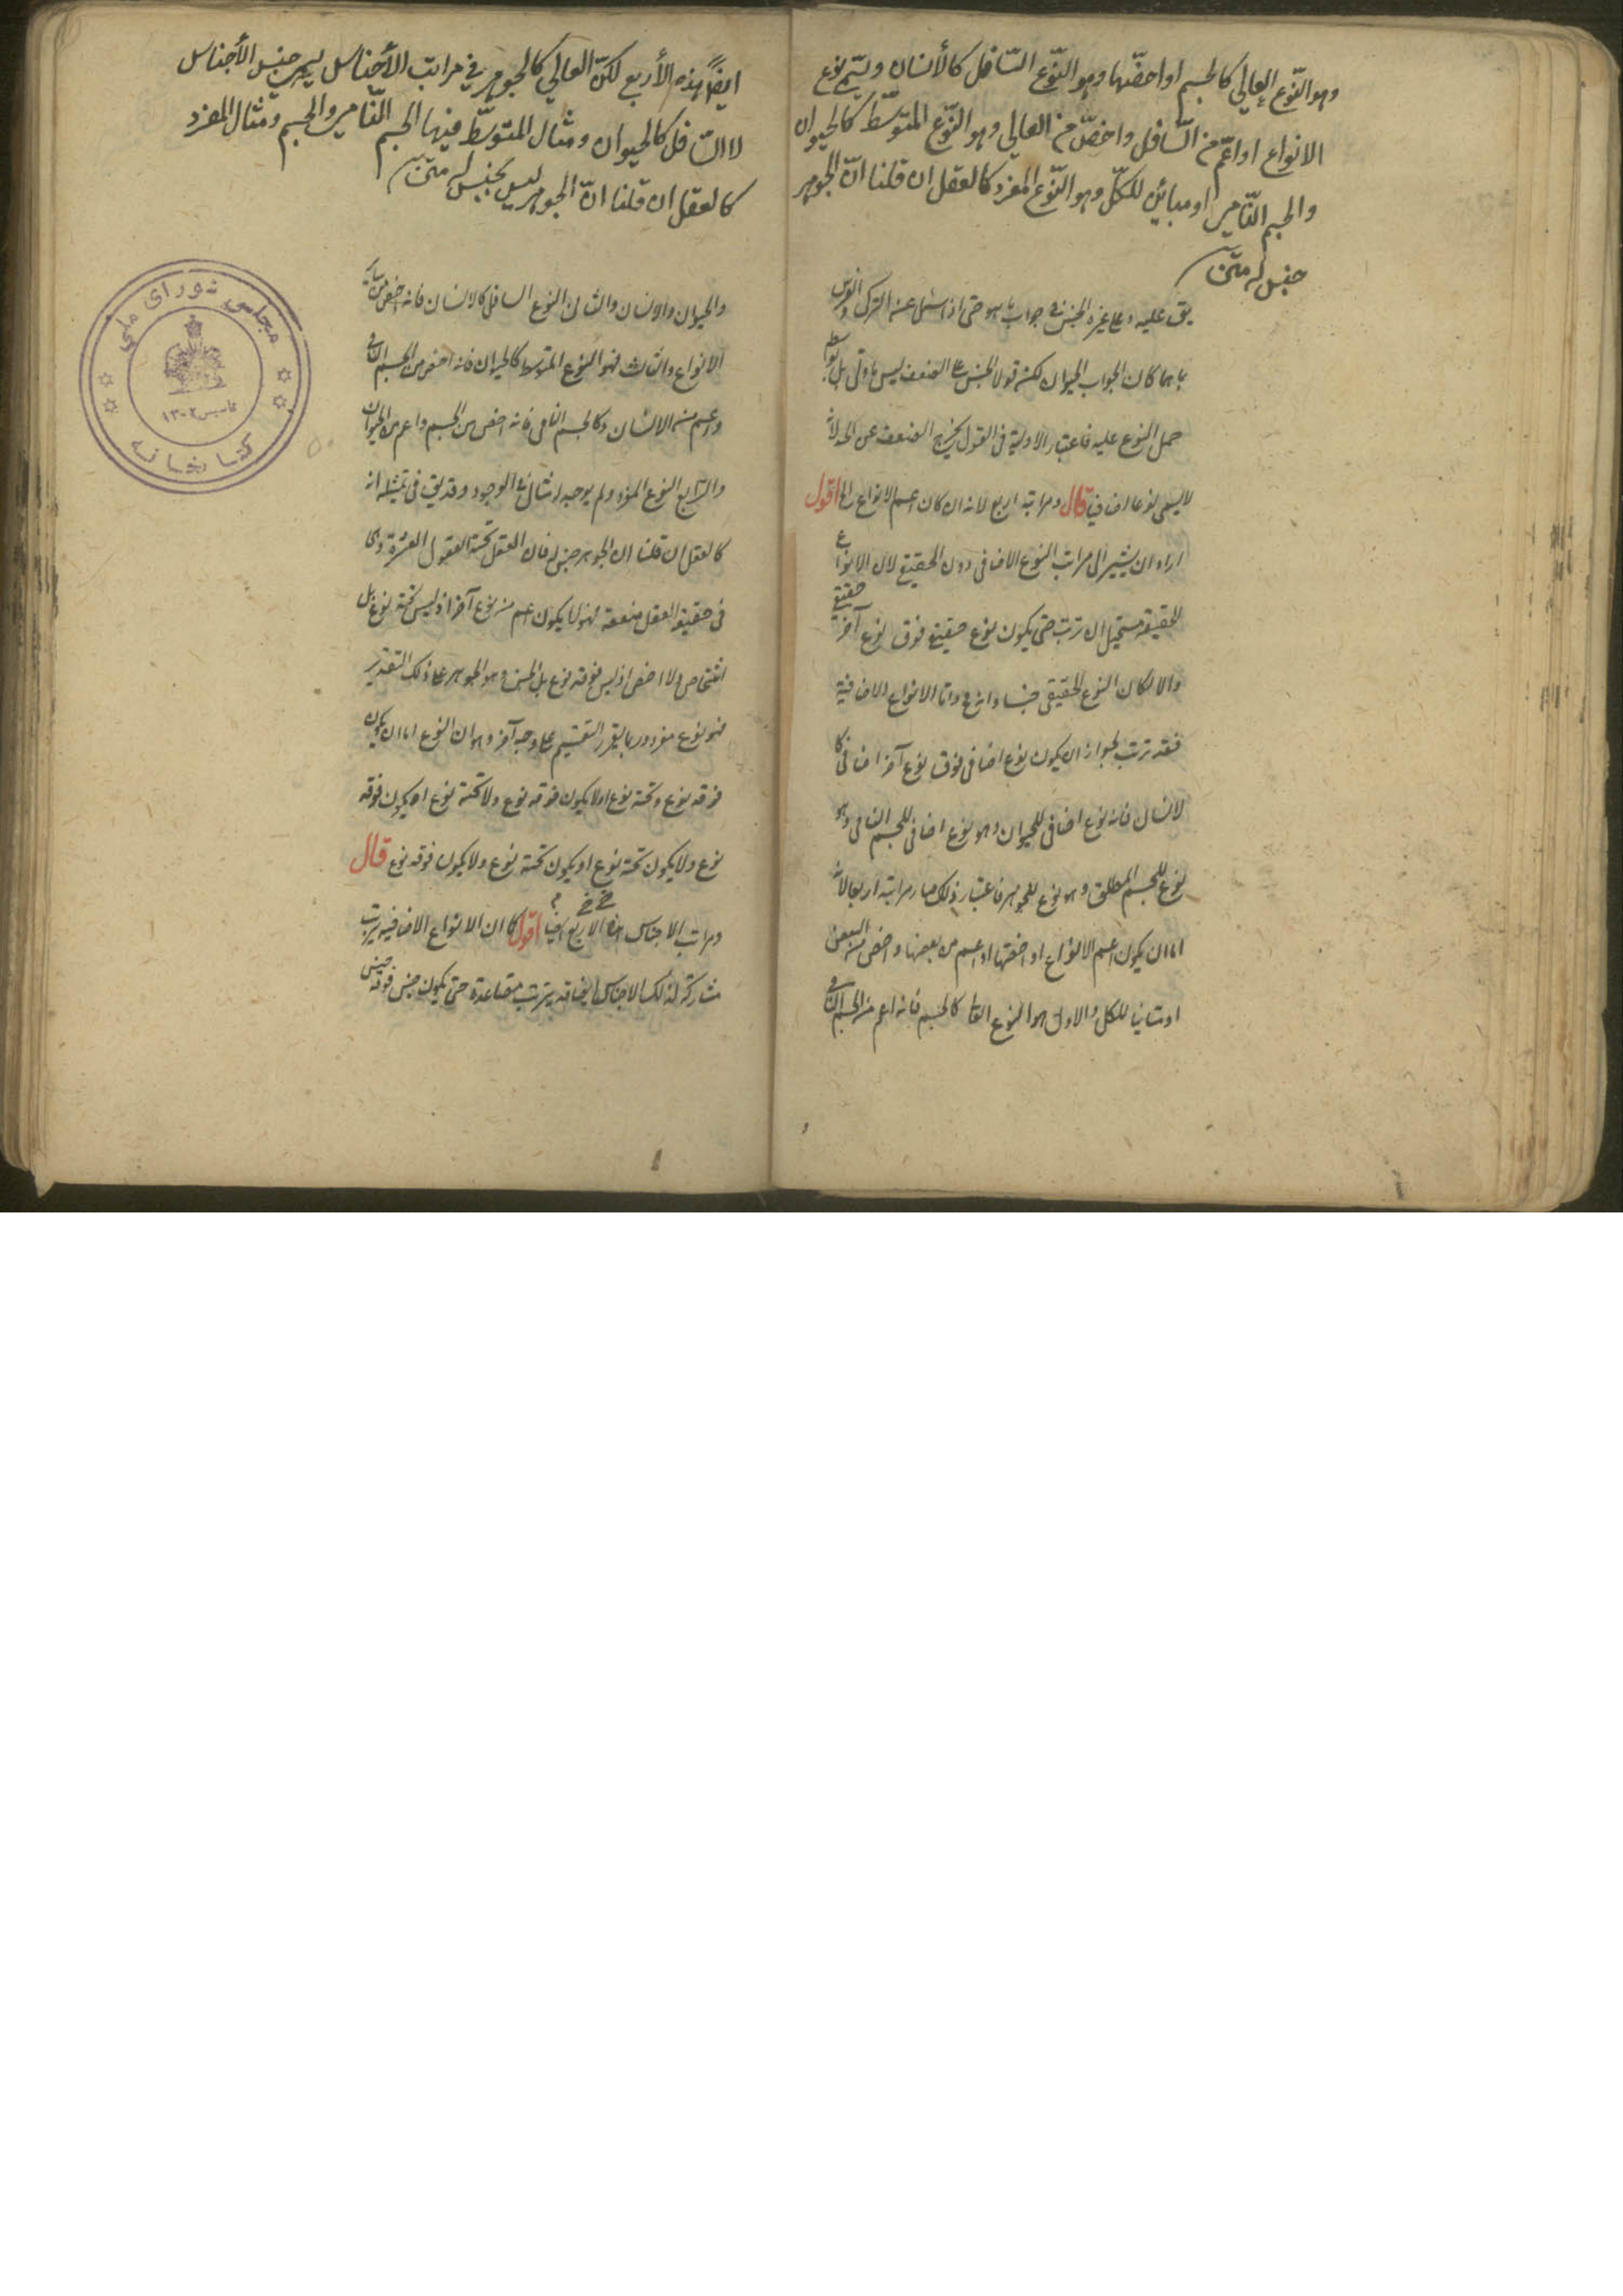 وهو النّوع العالي كالجسم او اخصّها وهو النّوع السّافل كالأنسان ويسمّى نوع
الانواع او اعمّ من السّافل واخصّ من العالي وهو النّوع المتوسّط كالحيوان
والجسم النّامي او مباين للكلّ وهو النّوع المفرد كالعقل ان قلنا انّ الجوهر
جنس له متن
يق عليه وعلى غيره الجنس في جواب ما هو حتى اذا سئل عن التركي والفرس
بما هما كان الجواب الحيوان لكن قول الجنس على الصنف ليس باولى بل بواسطة
حمل النوع عليه فاعتبار الاولية في القول يخرج الصنف عن الحد لانه
لا يسمى نوعا اضافيا قال ومراتبه اربع لانه ان كان اعم الانواع اقول
اراد ان يشير الى مراتب النوع الاضافي دون الحقيقي لان الانواع
الحقيقية مستحيل ان ترتب حتى يكون نوع حقيقي فوق نوع آخر حقيقي
والا لكان النوع الحقيقي جنسا واما الانواع الاضافية
فقد ترتب لجواز ان يكون نوع اضافي فوق نوع آخر اضافي كا
لانسان فانه نوع اضافي للحيوان وهو نوع اضافي للجسم النامي وهو
نوع للجسم المطلق وهو نوع للجوهر فاعتبار ذلك صار مراتبه اربعا لانه
اما ان يكون اعم الانواع او اخصها او اعم من بعضها واخص من البعض
او مباينا للكل والاول هو النوع العالي كالجسم فانه اعم من الجسم النامي
ايضًا هذه الأربع لكنّ العالي كالجوهر في مراتب الأجناس يسمى جنس الأجناس
لا السّافل كالحيوان ومثال المتوسّط فيها الجسم النّامي والجسم ومثال المفرد
كالعقل ان قلنا انّ الجوهر ليس بجنس له متن
والحيوان والانسان والثاني النوع السافل كالانسان فانه اخص من سائر
الانواع والثالث فهو النوع المتوسط كالحيوان فانه اخص من الجسم النامي
واعم من الانسان وكالجسم النامي فانه اخص من الجسم واعم من الحيوان
والرابع النوع المفرد ولم يوجد له مثال في الوجود وقد يق في تمثيله انه
كالعقل ان قلنا ان الجوهر جنس له فان العقل تحته العقول العشرة وهي
في حقيقة العقل متفقة فهو لا يكون اعم من نوع آخر اذ ليس تحته نوع بل
اشخاص ولا اخص اذ ليس فوقه نوع بل الجنس وهو الجوهر على ذلك التقدير
فهو نوع مفرد وربما يقرر التقسيم على وجه آخر وهو ان النوع اما ان يكون
فوقه نوع وتحته نوع او لا يكون فوقه نوع ولا تحته نوع او يكون فوقه
نوع ولا يكون تحته نوع او يكون تحته نوع ولا يكون فوقه نوع قال
ومراتب الاجناس هذه الاربع ايضا اقول كما ان الانواع الاضافية ترتب
متنازلة كذلك الاجناس ايضا قد يترتب متصاعدة حتى يكون جنس فوقه جنس
مجلس شورای ملی
تاسیس ۱۳۰۲
کتابخانه